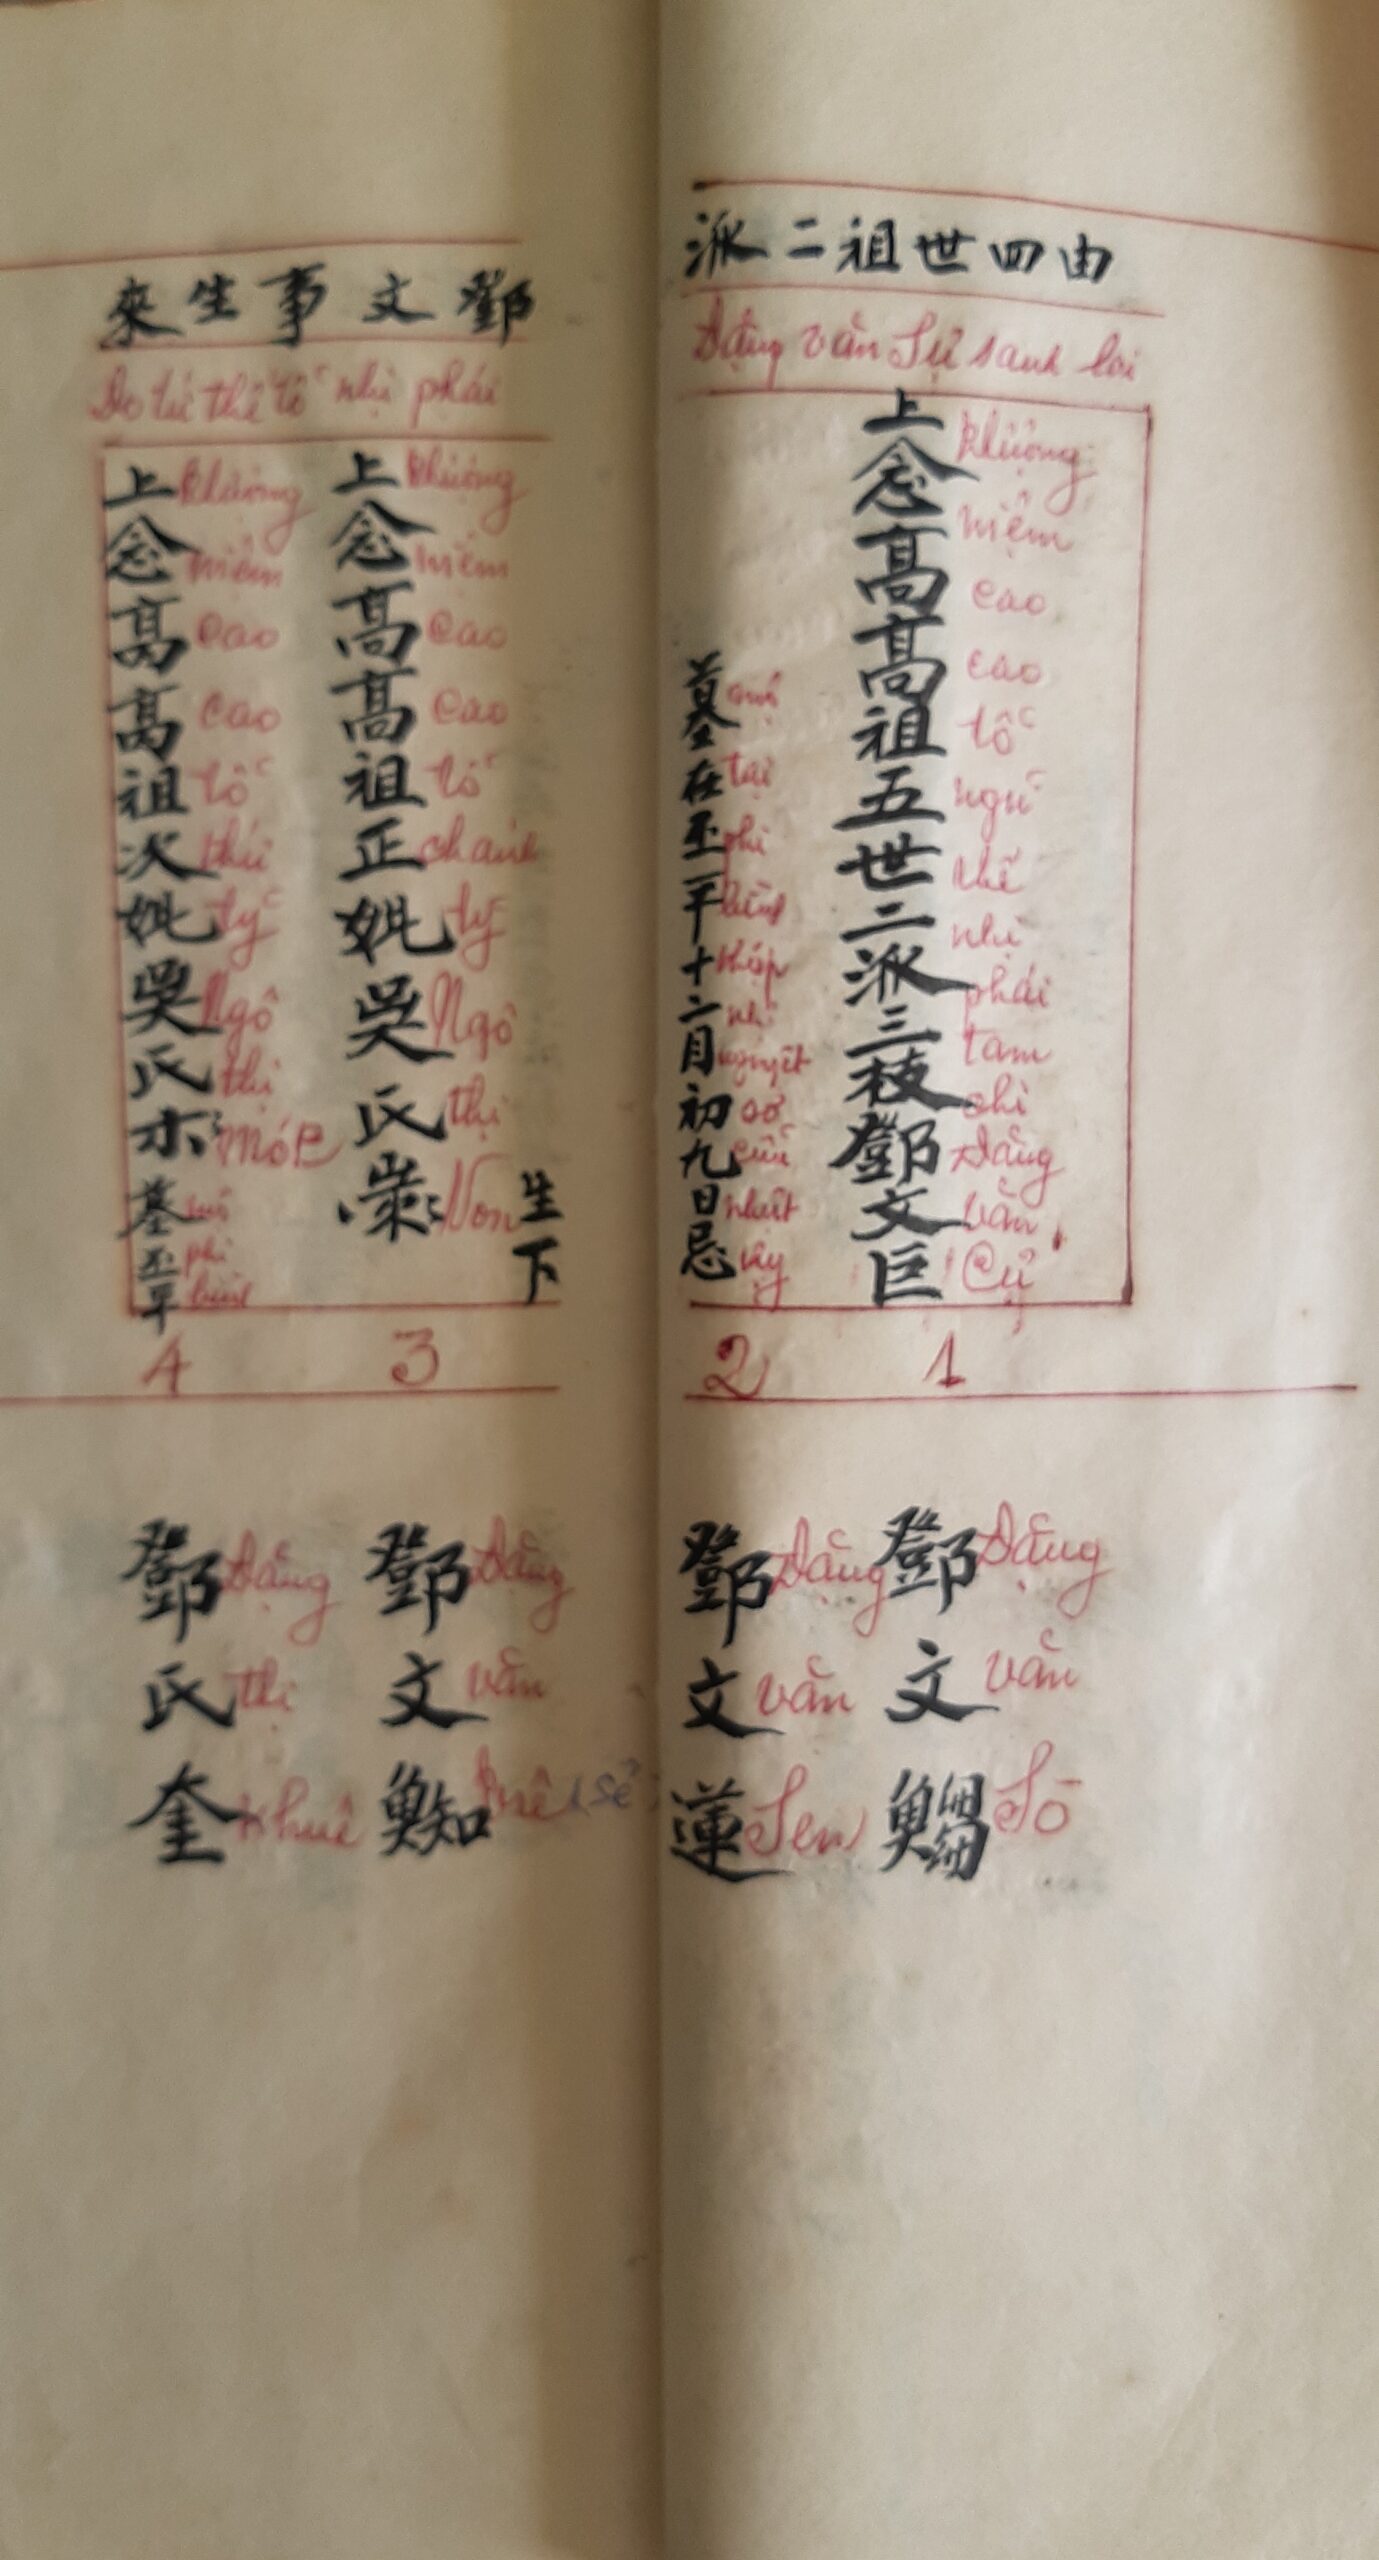 由四世祖二派
Đặng văn Sự sanh lai
鄧文事生來
Do tứ thế tổ nhị phái
上念高高祖五世二派三枝鄧文巨
Thượng niệm cao cao tổ ngũ thế nhị phái tam chi Đặng văn Cự
墓在丕平十二月初九日忌
mộ tại phi bình thập nhị nguyệt sơ cửu nhựt kỵ
生下
上念高高祖正妣吳氏
Thượng niệm cao cao tổ chánh tỷ Ngô thị Non
上念高高祖次妣吳氏
Thượng niệm cao cao tổ thứ tỷ Ngô thị Móp
墓丕平
mộ phi bình
1
2
3
4
鄧文
Đặng văn Sò
鄧文蓮
Đặng văn Sen
鄧文
Đặng văn
鄧氏奎
Đặng thị Khuê